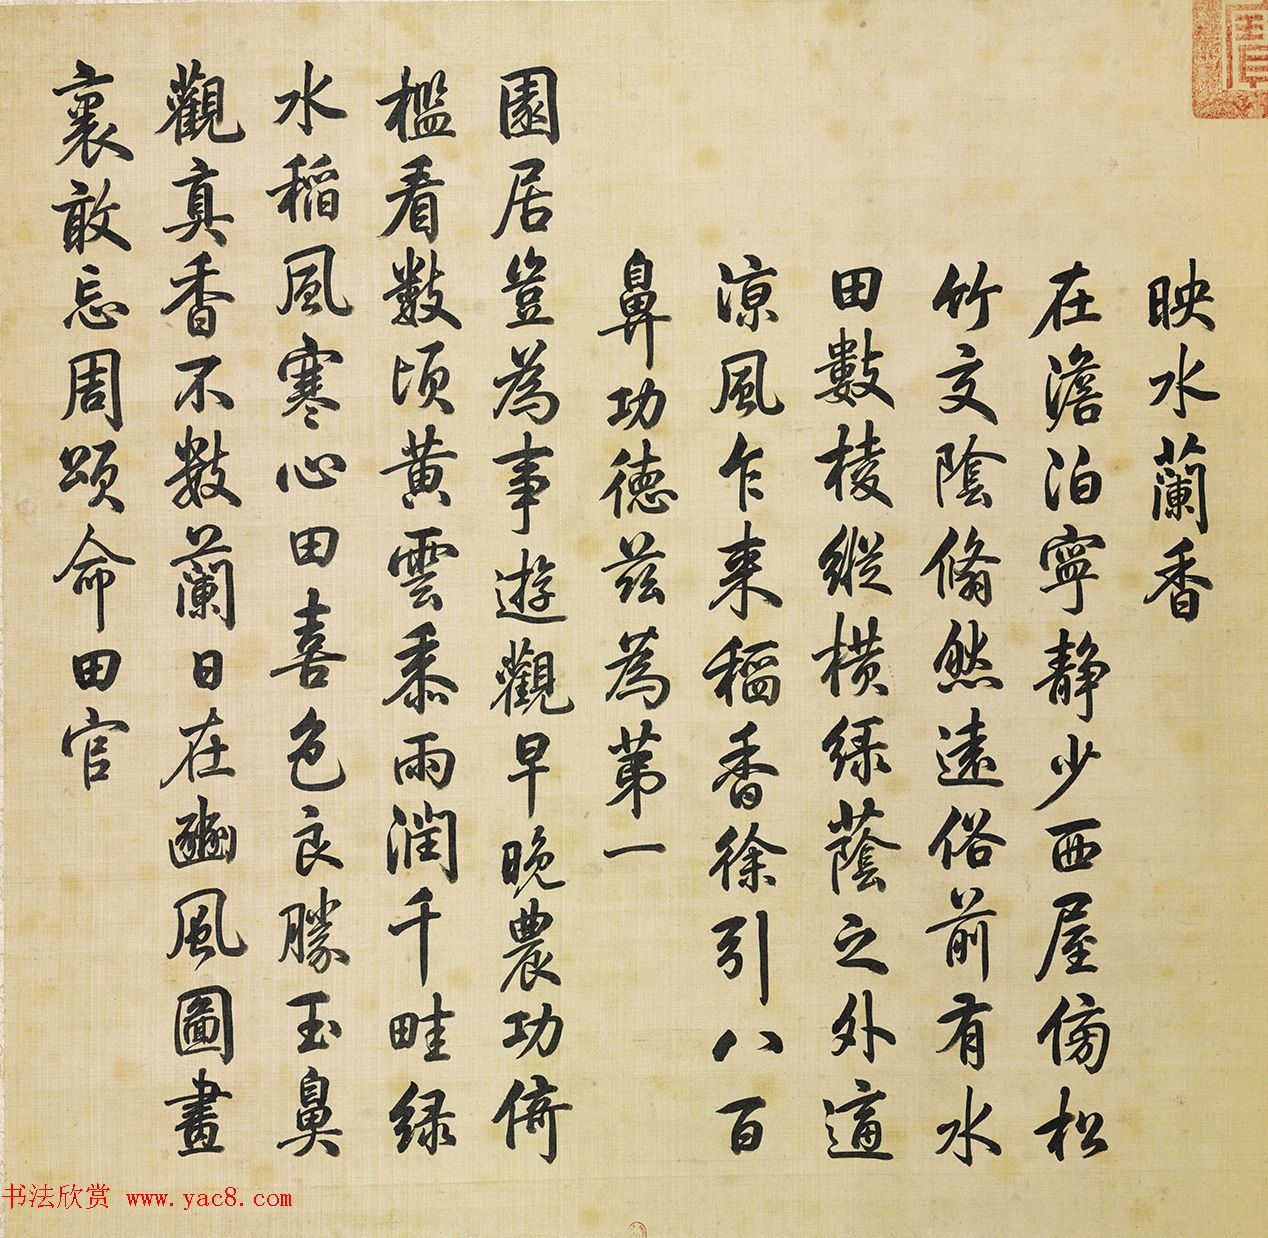 映水蘭香
在澹泊寧静少西屋傍松
竹交陰翛然遠俗前有水
田數棱縱横緑蔭之外適
凉風乍来稻香徐引八百
鼻功德兹為第一
園居豈為事遊觀早晚農功倚
檻看數頃黄雲黍雨潤千畦緑
水稻風寒心田喜色良勝玉鼻
觀真香不數蘭日在豳風圖畫
裏敢忘周頌命田官
书法欣赏 www.yac8.com